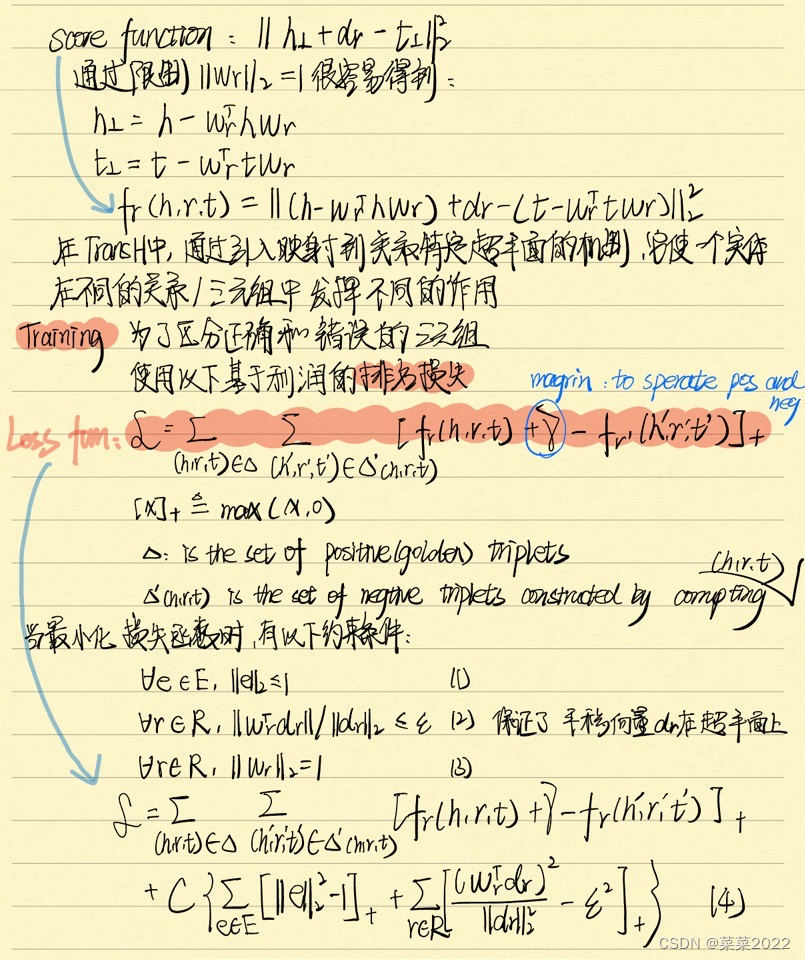 score function: ‖h⊥ + dr − t⊥‖₂²
通过限制 ‖wr‖₂ = 1 很容易得到:
h⊥ = h − wrᵀhwr
t⊥ = t − wrᵀtwr
fr(h,r,t) = ‖(h−wrᵀhwr) + dr − (t−wrᵀtwr)‖₂²
在TransH中, 通过引入映射到关系特定超平面的机制, 它使一个实体
在不同的关系/三元组中发挥不同的作用
Training 为了区分正确和错误的三元组
使用以下基于利润的排名损失
magrin: to sperate pos and
neg
Loss fum: ℒ = Σ Σ [fr(h,r,t) + γ − fr′(h′,r′,t′)]₊
(h,r,t)∈Δ (h′,r′,t′)∈Δ′(h,r,t)
[x]₊ ≜ max(x,0)
Δ: is the set of positive(golden) triplets
(h,r,t)
Δ′(h,r,t) is the set of negtive triplets constructed by corrupting
当最小化损失函数时, 有以下约束条件:
∀e∈E, ‖e‖₂ ≤ 1 (1)
∀r∈R, ‖wrᵀdr‖/‖dr‖₂ ≤ ε (2) 保证了平移向量dr在超平面上
∀r∈R, ‖wr‖₂ = 1 (3)
ℒ = Σ Σ [fr(h,r,t) + γ − fr(h′,r′,t′)]₊
(h,r,t)∈Δ (h′,r′,t′)∈Δ′(h,r,t)
+ C{Σe∈E [‖e‖₂² − 1]₊ + Σr∈R [(wrᵀdr)²/‖dr‖₂² − ε²]₊} (4)
CSDN @菜菜2022